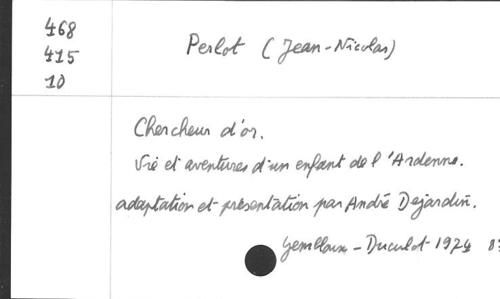 468
415
10
Perlot (Jean-Nicolas)
Chercheur d'or.
Vie et aventures d'un enfant de l'Ardenne.
adaptation et présentation par André Dejardin.
Gembloux - Duculot 1974